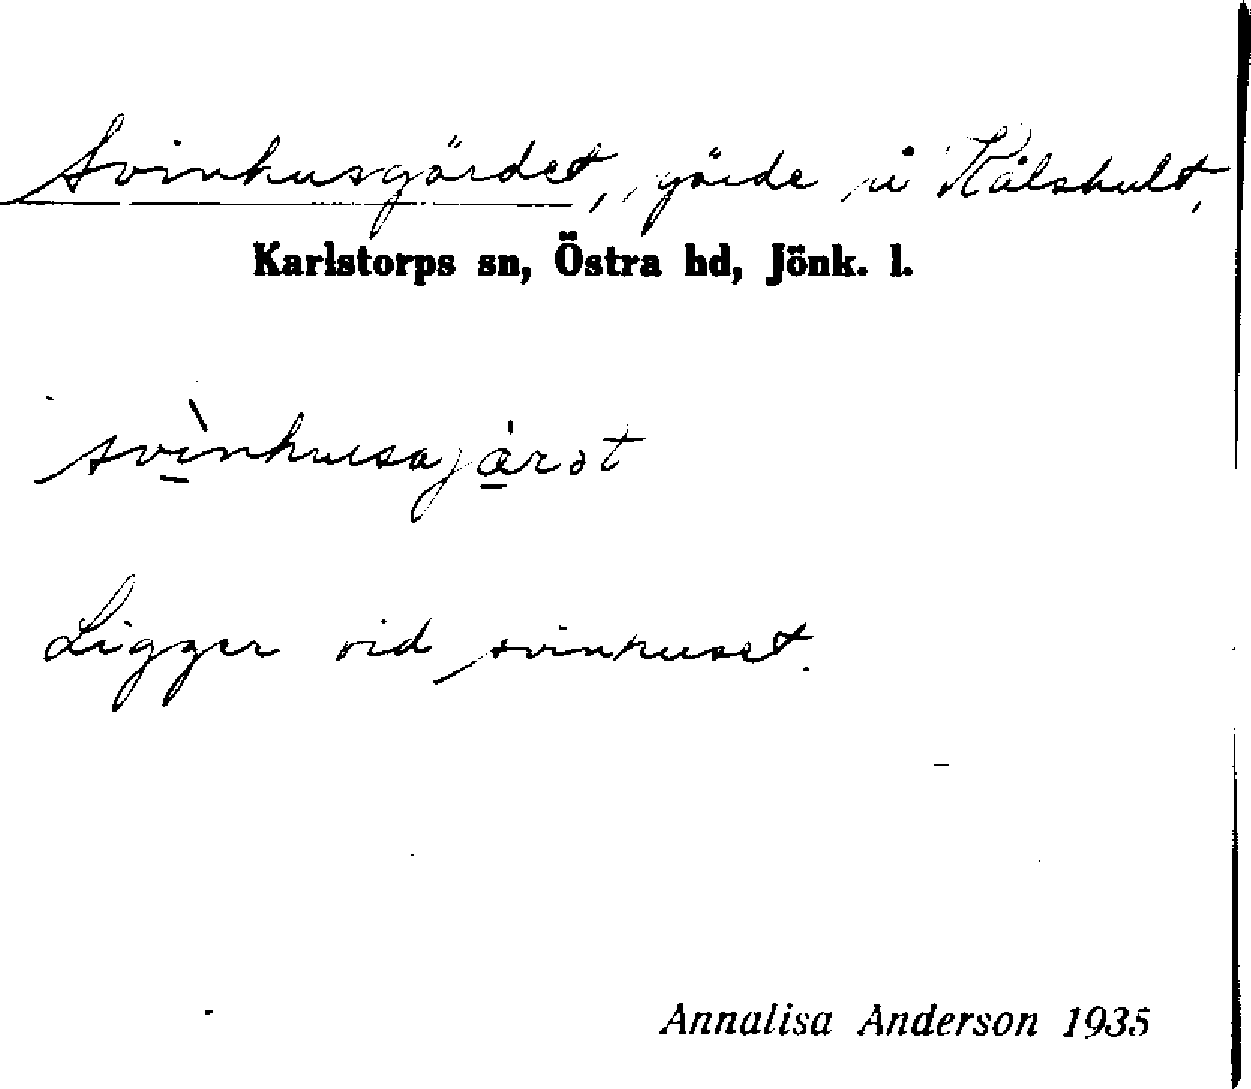 Svinhusgärdet, gärde i Kålshult,
Karlstorps sn, Östra hd, Jönk. l.
svìnhusajárot
Ligger vid svinhuset.
Annalisa Anderson 1935